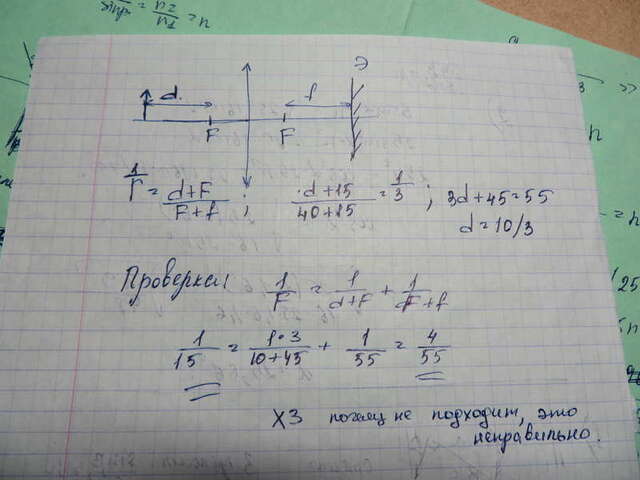 Э
d f
F F
1/Г = d+F/F+f ; d+15/40+15 = 1/3 ; 3d+45=55
d=10/3
Проверка: 1/F = 1/d+F + 1/F+f
1/15 = 1·3/10+45 + 1/55 = 4/55
ХЗ не подходит, это
неправильно.